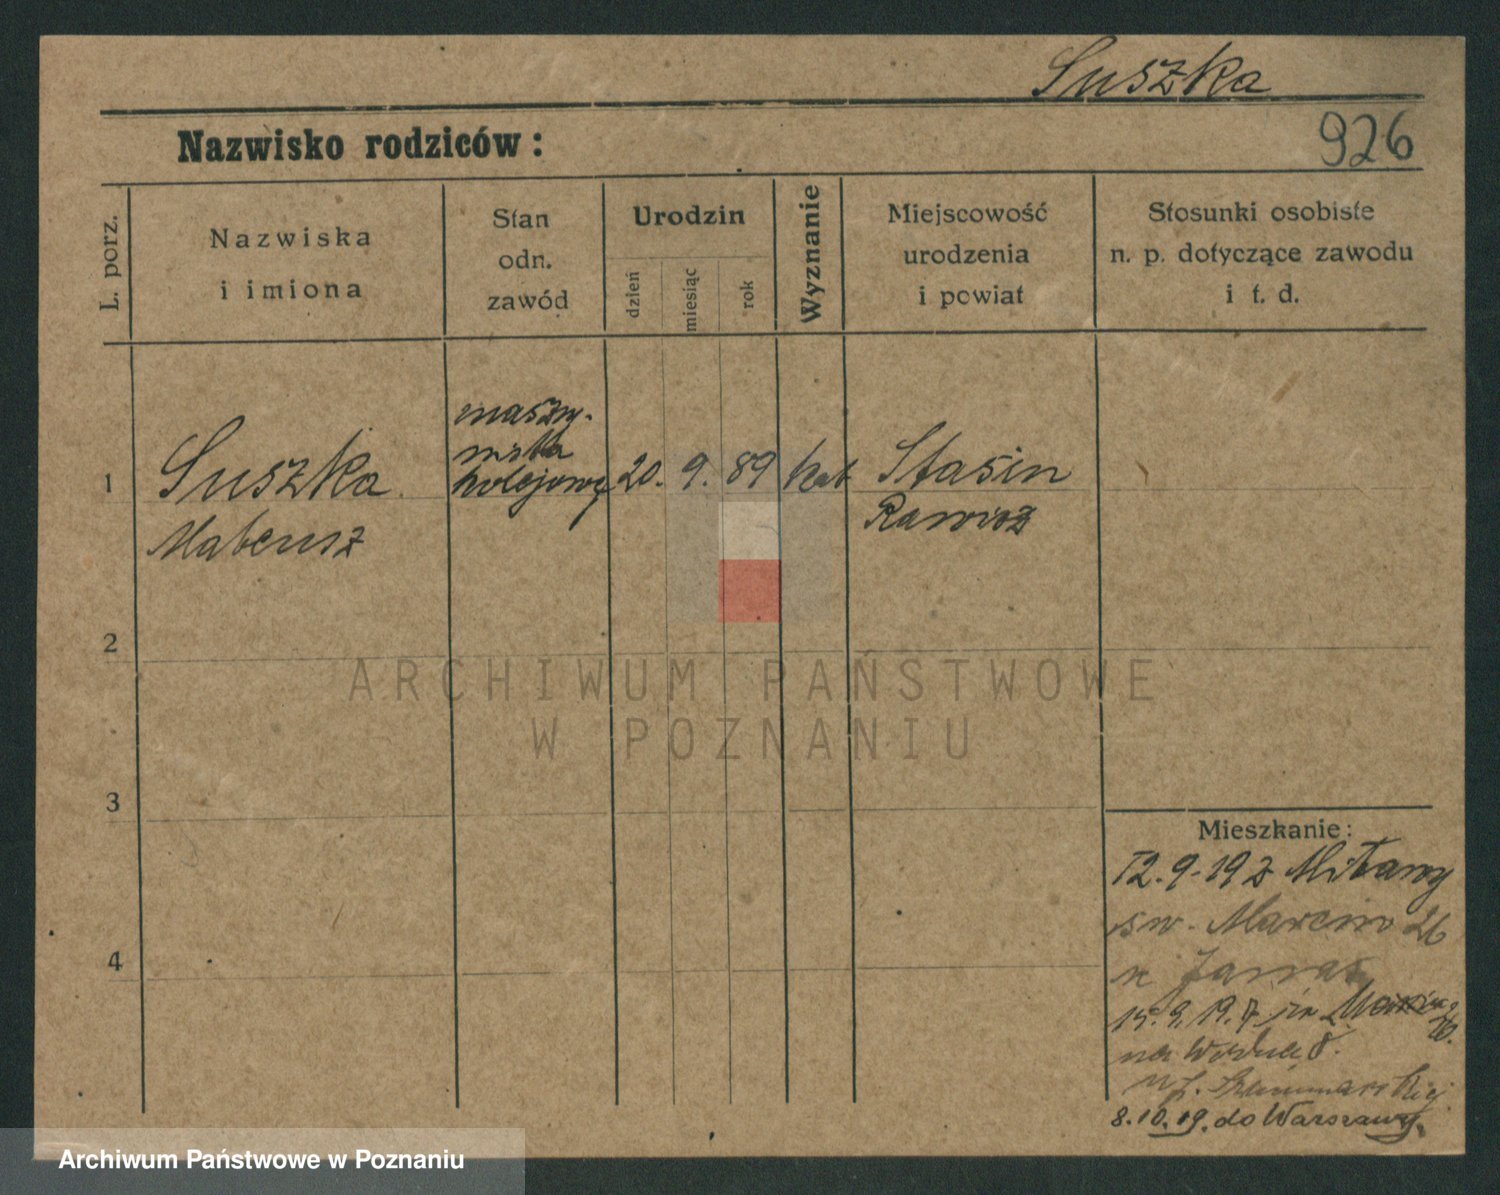 Suszka
Nazwisko rodziców:
926
L. porz.
Nazwiska
i imiona
Stan
odn.
zawód
Urodzin
dzień
miesiąc
rok
Wyznanie
Miejscowość
urodzenia
i powiat
Stosunki osobiste
n. p. dotyczące zawodu
i t. d.
1
Suszka
Mateusz
maszy-
nista
kolejowy
20. 9. 89
kat
Stasin
Rawicz
2
ARCHIWUM PAŃSTWOWE
W POZNANIU
3
Mieszkanie:
12.9.19 z
św. Marcin 26
15.9.19. z św. Marcin 26.
na
4
8.10.19. do Warszawy.
Archiwum Państwowe w Poznaniu